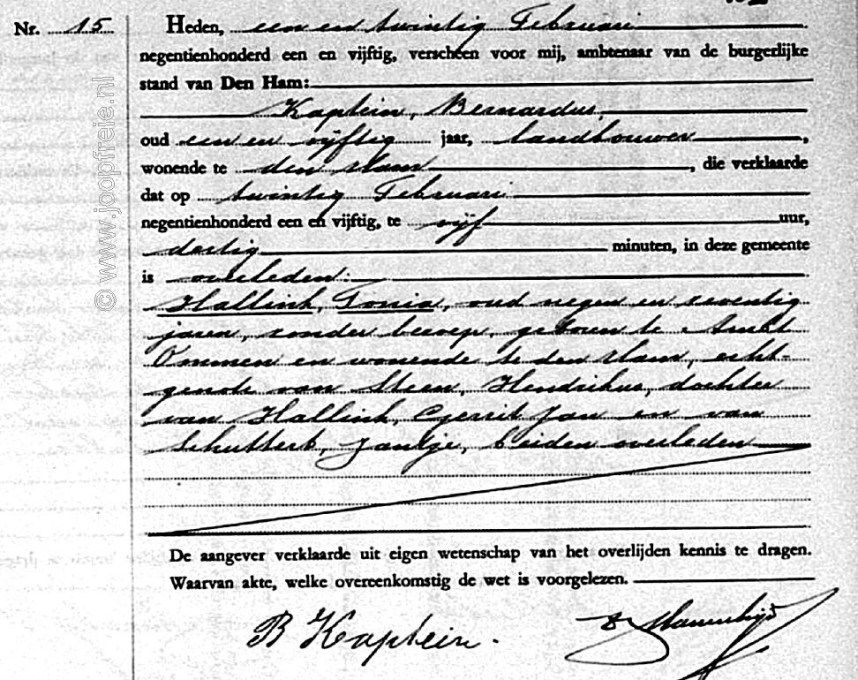 Nr. 15
Heden, een en twintig Februari
negentienhonderd een en vijftig, verscheen voor mij, ambtenaar van de burgerlijke
stand van Den Ham:
Kaptein, Bernardus,
oud een en vijftig jaar, landbouwer,
wonende te den Ham, die verklaarde
dat op twintig Februari
negentienhonderd een en vijftig, te vijf uur,
dertig minuten, in deze gemeente
is overleden:
Hallink, Tonia, oud negen en zeventig
jaren, zonder beroep, geboren te Ambt
Ommen en wonende te den Ham, echt-
genote van Steen, Hendrikus, dochter
van Hallink, Gerrit Jan en van
Schuttert, Jantje, beiden overleden
De aangever verklaarde uit eigen wetenschap van het overlijden kennis te dragen.
Waarvan akte, welke overeenkomstig de wet is voorgelezen.
B Kaptein.
© www.joopfreie.nl